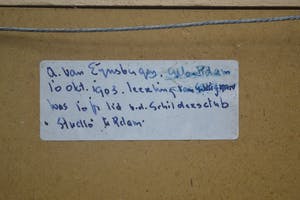 a. van Eijnsbergen. geb. R'dam
10 okt. 1903. leerling van
was is/p lid v.d. Schildersclub
"Studio" R'dam.